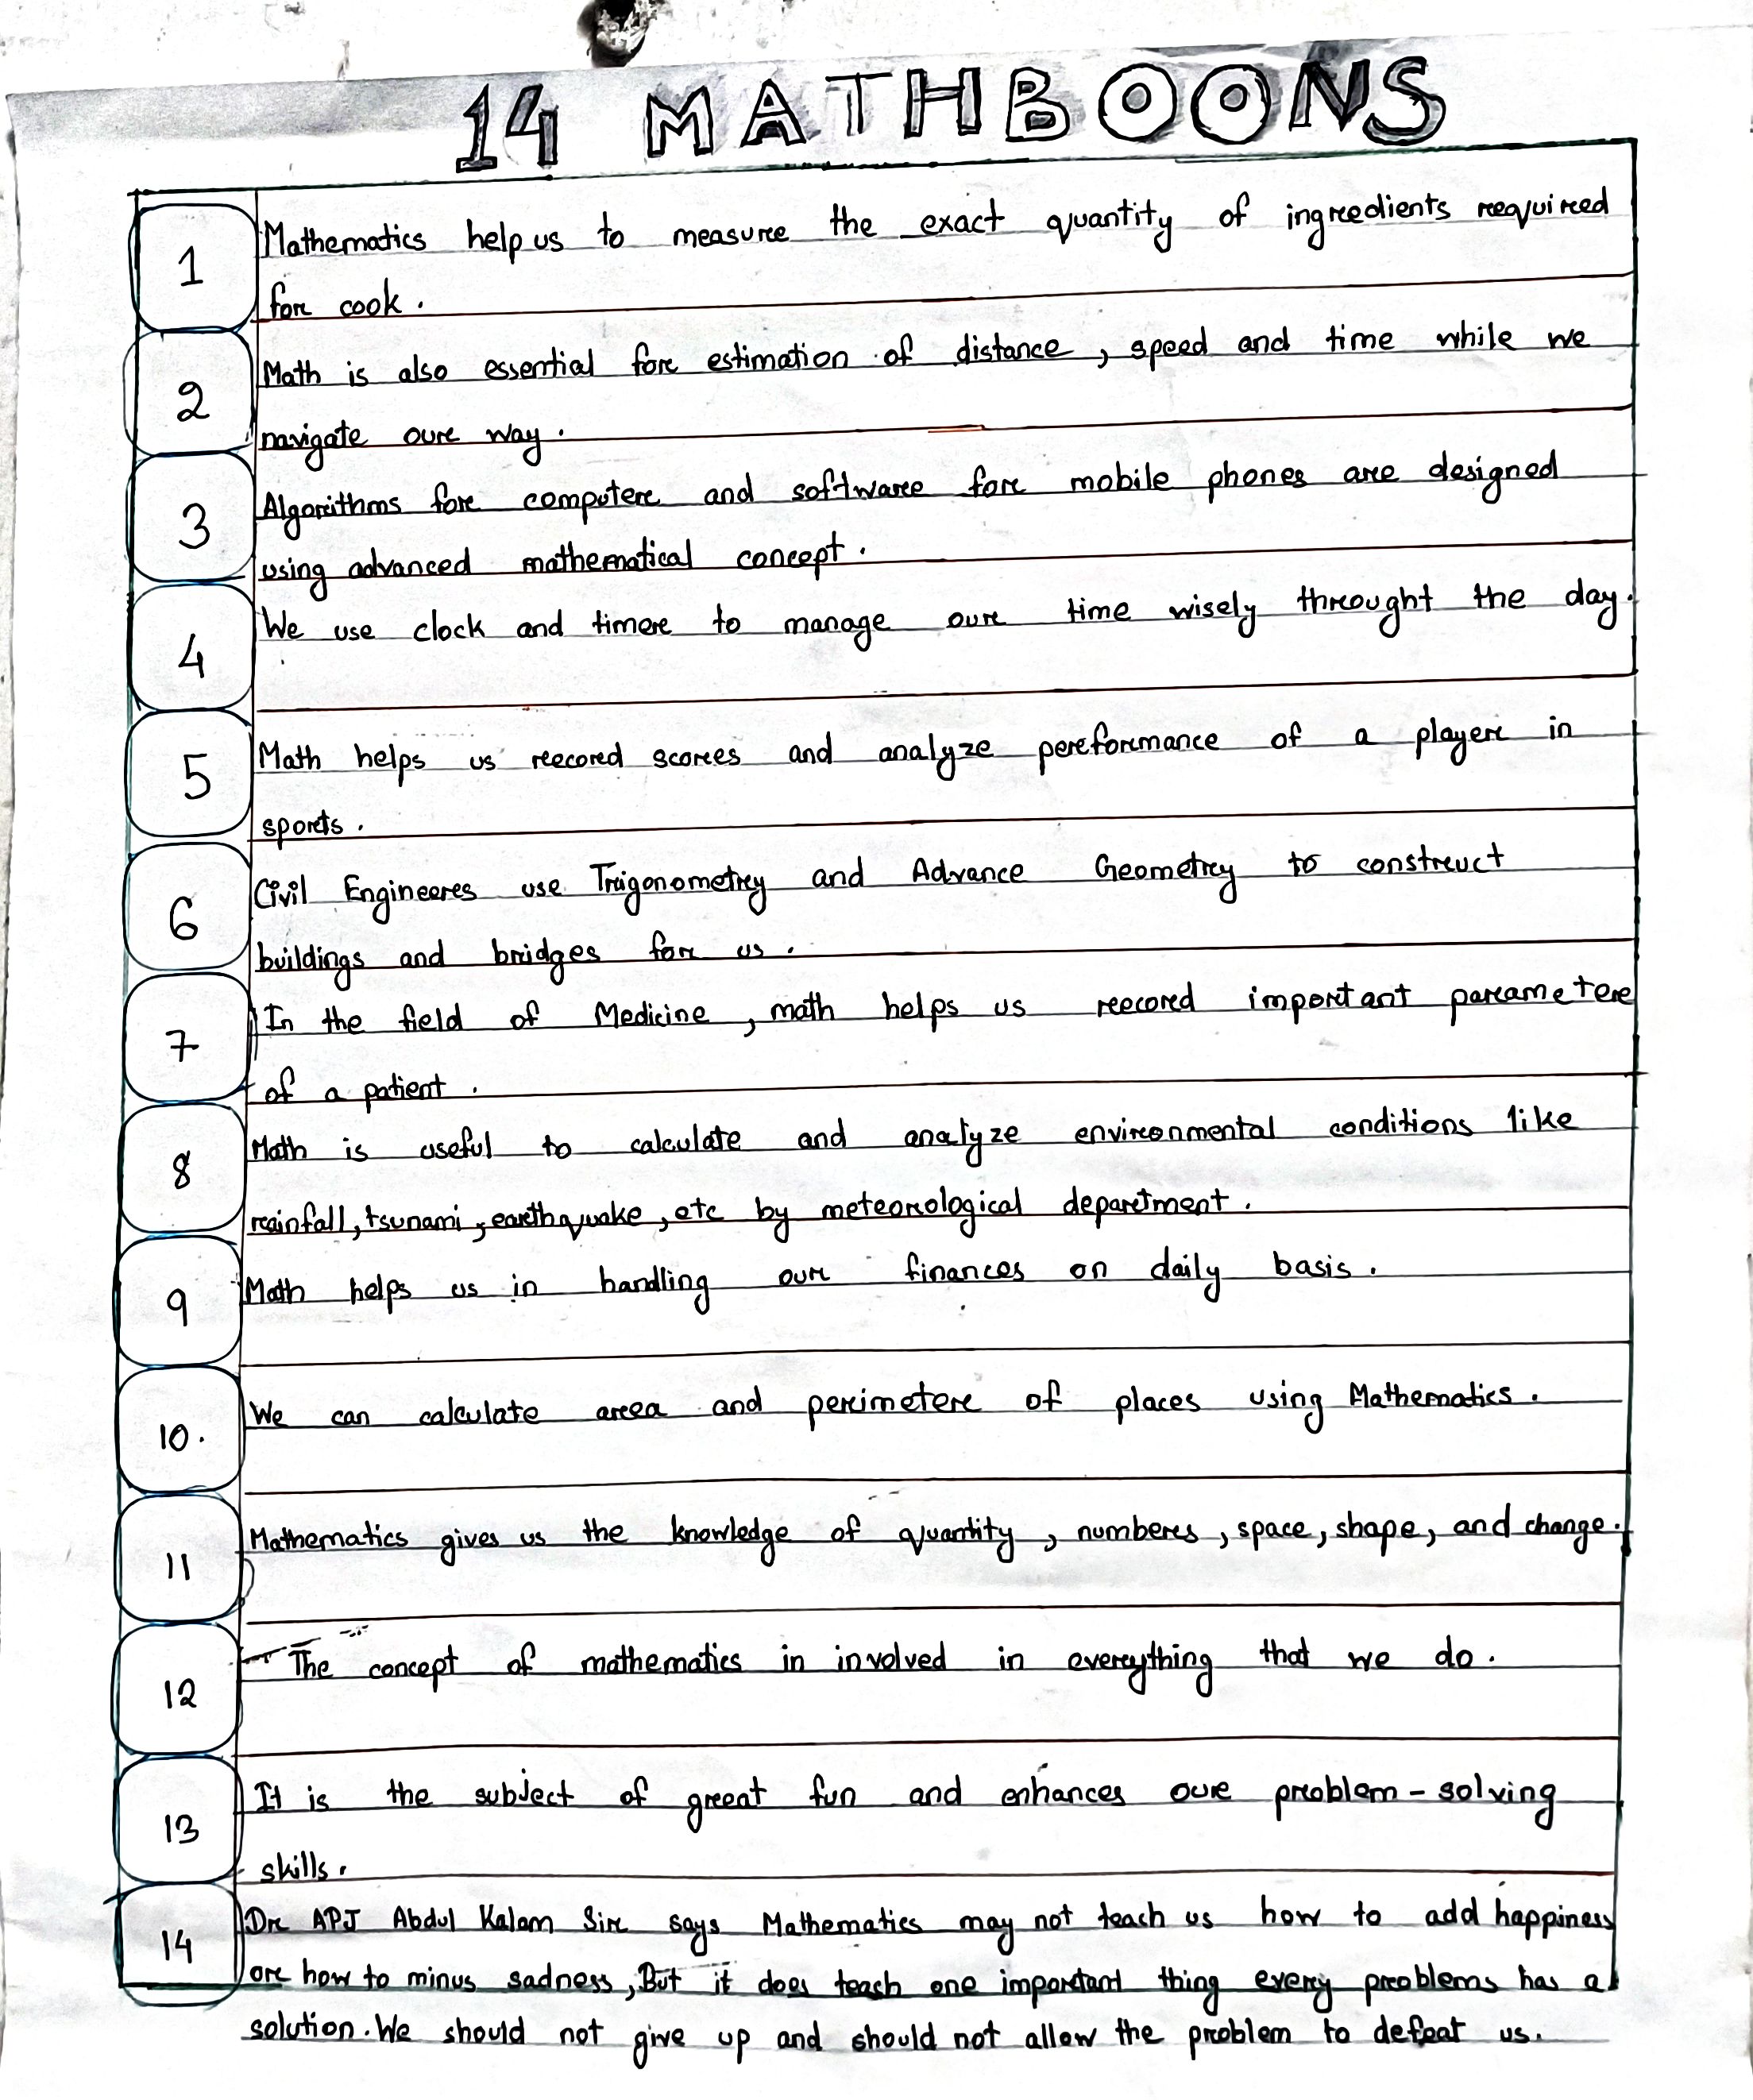 14 MATHBOONS
1 Mathematics help us to measure the exact quantity of ingredients required
for cook.
2 Math is also essential for estimation of distance, speed and time while we
navigate our way.
3 Algorithms for computer and software for mobile phones are designed
using advanced mathematical concept.
4 We use clock and timer to manage our time wisely throught the day.
5 Math helps us record scores and analyze performance of a player in
sports.
6 Civil Engineers use Trigonometry and Advance Geometry to construct
buildings and bridges for us.
7 In the field of Medicine, math helps us record important parameter
of a patient.
8 Math is useful to calculate and analyze environmental conditions like
rainfall, tsunami, earthquake, etc by meteorological department.
9 Math helps us in handling our finances on daily basis.
10. We can calculate area and perimeter of places using Mathematics.
11 Mathematics gives us the knowledge of quantity, numbers, space, shape, and change.
12 The concept of mathematics in involved in everything that we do.
13 It is the subject of great fun and enhances our problem-solving
skills.
14 Dr APJ Abdul Kalam Sir says Mathematics may not teach us how to add happiness
or how to minus sadness, But it does teach one important thing every problems has a
solution. We should not give up and should not allow the problem to defeat us.